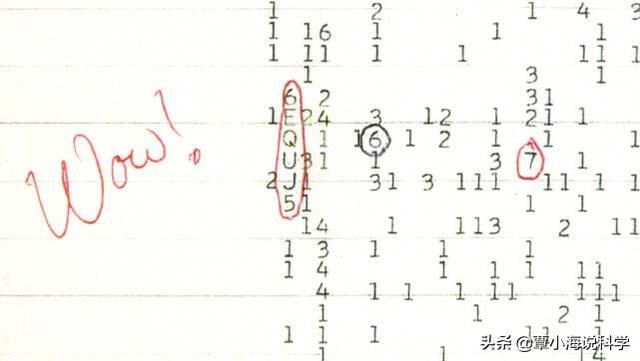 1 2 1 4 3
1 16 1 1 1
1 11 1 1 11 1
1 3 1
6 2 31
1 E 24 3 12 1 21 1
Wow! Q 1 16 1 2 1 1 1
U 31 1 3 7 1
2 J 1 31 3 111 11 1 1
5 1 1 1
14 1 113 2 11
1 3 1 1 1
1 4 1 1 1 11
4 1 1 1 11 111
1 1 2 1
1 1 1 1
1 1 4
头条 @覃小海说科学